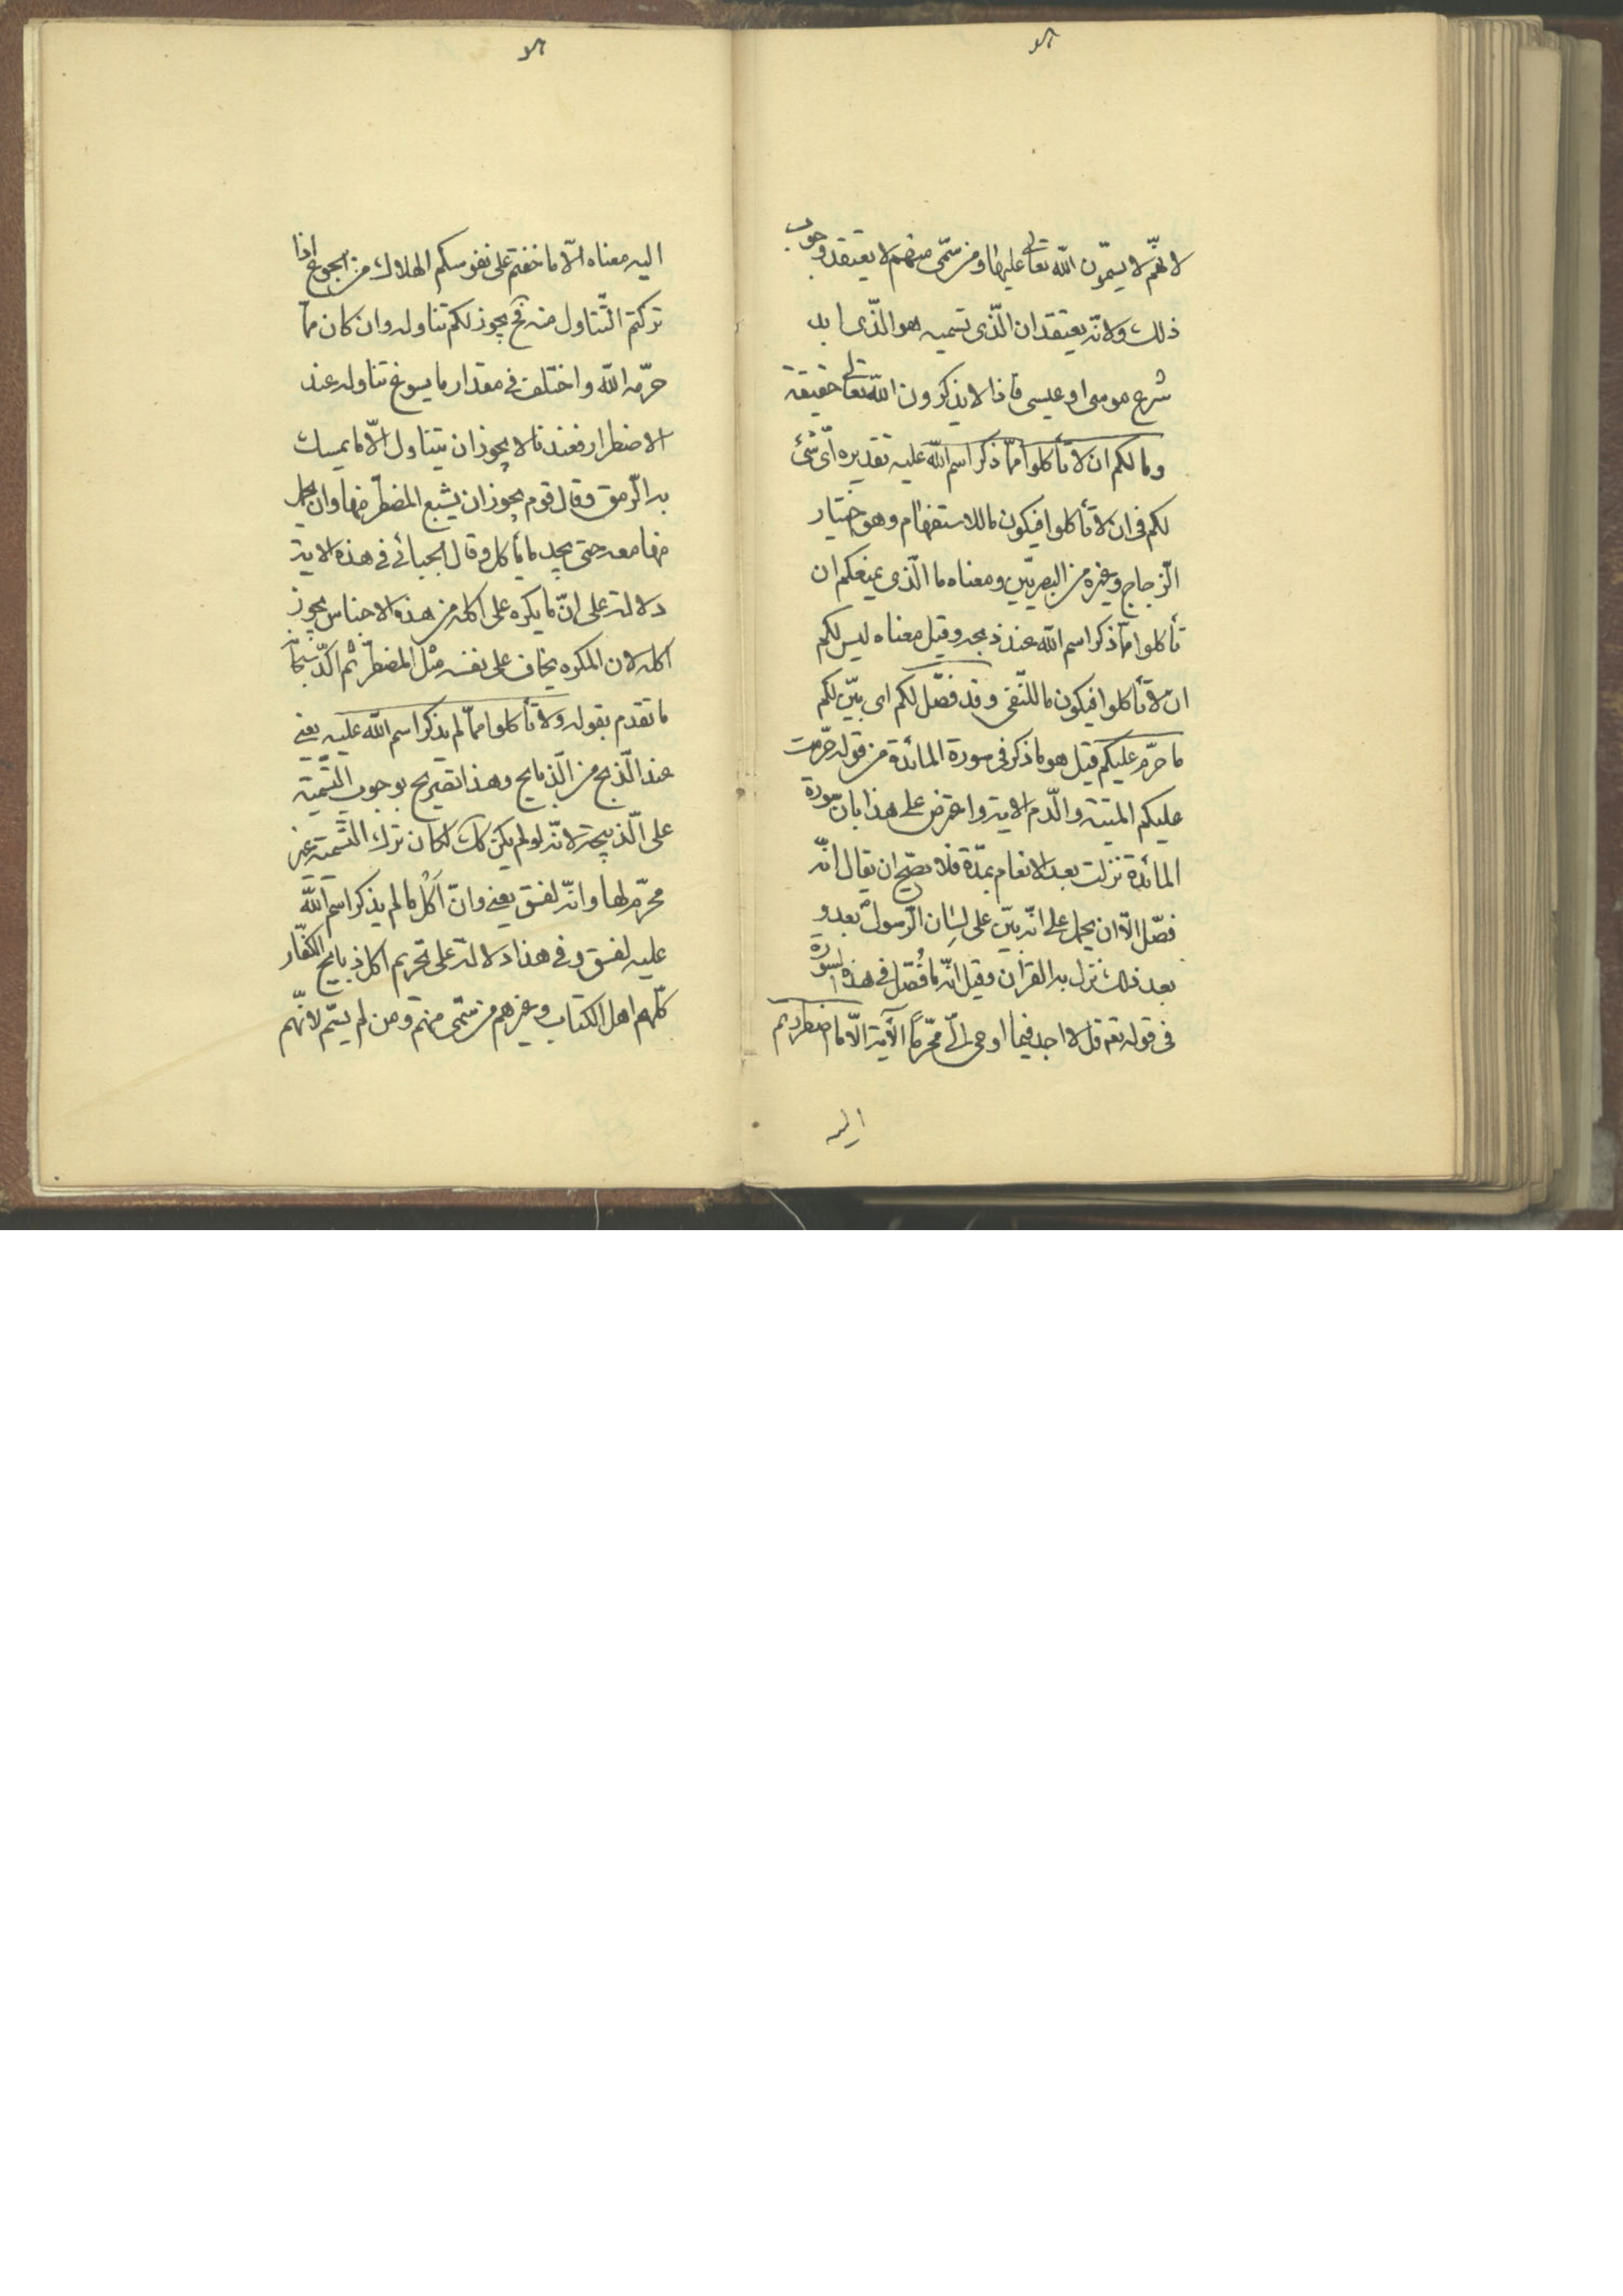 لانّهم لا يسمّون الله تعالى عليها ومن سمّى منهم لا يعتقد وجوب
ذلك ولانّه يعتقد ان الّذى تسميه هو الّذى ابد
شرع موسى او عيسى فاذا لا يذكرون الله تعالى حقيقة
وما لكم ان لا تأكلوا ممّا ذكر اسم الله عليه تقديره اىّ شئ
لكم فى ان لا تأكلوا فيكون ما للاستفهام وهو اختيار
الزّجاج وغيره من البصريّين ومعناه ما الّذى يمنعكم ان
تأكلوا ممّا ذكر اسم الله عند ذبحه وقيل معناه ليس لكم
ان لا تأكلوا فيكون ما للنّفى وقد فصّل لكم اى بيّن لكم
ما حرّم عليكم قيل هو ما ذكر فى سورة المائدة من قوله حرّمت
عليكم الميتة والدّم الاية واعترض على هذا بانّ سورة
المائدة نزلت بعد الانعام بمدّة فلا يصحّ ان يقال انّه
فصّل الّا ان يحمل على انّه بيّن على لسان الرّسول بعد و
بعد ذلك نزل به القرآن وقيل انّه ما فُصّل فى هذه السورة
فى قوله تعه قل لا اجد فيما اوحى الىّ محرّمًا الآية الّا ما اضطررتم
اليه
اليه معناه الّا ما خفتم على نفوسكم الهلاك من الجوع اذا
تركتم التّناول منه فح يجوز لكم تناوله وان كان ممّا
حرّمه الله واختلف فى مقدار ما يسوغ تناوله عند
الاضطرار فعندنا لا يجوز ان يتناول الّا ما يمسك
به الرّمق وقال قوم يجوز ان يشبع المضطرّ منها وان يحمل
منها معه حتى يجد ما يأكل وقال الجبائى فى هذه الاية
دلالة على انّ ما يكره على اكله من هذه الاجناس يجوز
اكله لان المكره يخاف على نفسه مثل المضطرّ ثم اكّد سبحانه
ما تقدم بقوله ولا تأكلوا ممّا لم يذكر اسم الله عليه يعنى
عند الذّبح من الذّبايح وهذا تصريح بوجوب التّسمية
على الذّبيحة لانّه لو لم يكن كك لكان ترك التّسمية غير
محرّم لها وانّه لفسق يعنى وانّ اَكْل ما لم يذكر اسم الله
عليه لفسق وفى هذا دلالة على تحريم اكل ذبايح الكفّار
كلّهم اهل الكتاب وغيرهم من سمّى منهم ومن لم يسمّ لانّهم